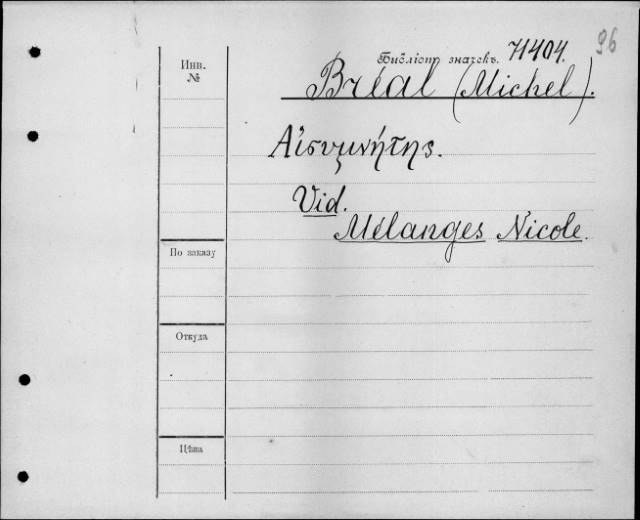 96
Библіогр. значекъ. 71404.
Инв.
№
Bréal (Michel).
Αἰσυμνήτης.
Vid.
Mélanges Nicole.
По заказу
Откуда
Цѣна